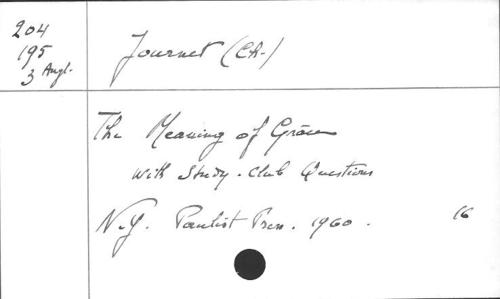 204
195
3 Angl.
Journet (Ch.)
The Meaning of Grace
with Study-Club Questions
N.Y. Paulist Press. 1960.
16